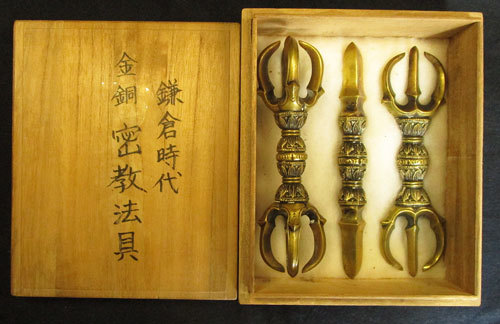 鎌倉時代
金銅 密教法具